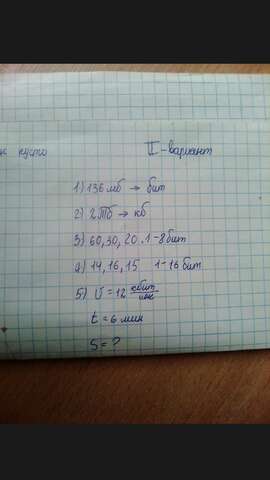 к пусто
II-вариант
1) 136 мб → бит
2) 2Тб → кб
3) 60, 30, 20. 1-8бит
4) 14, 16, 15 1-16 бит
5) V = 12 кбит/сек
t = 6 мин
S = ?